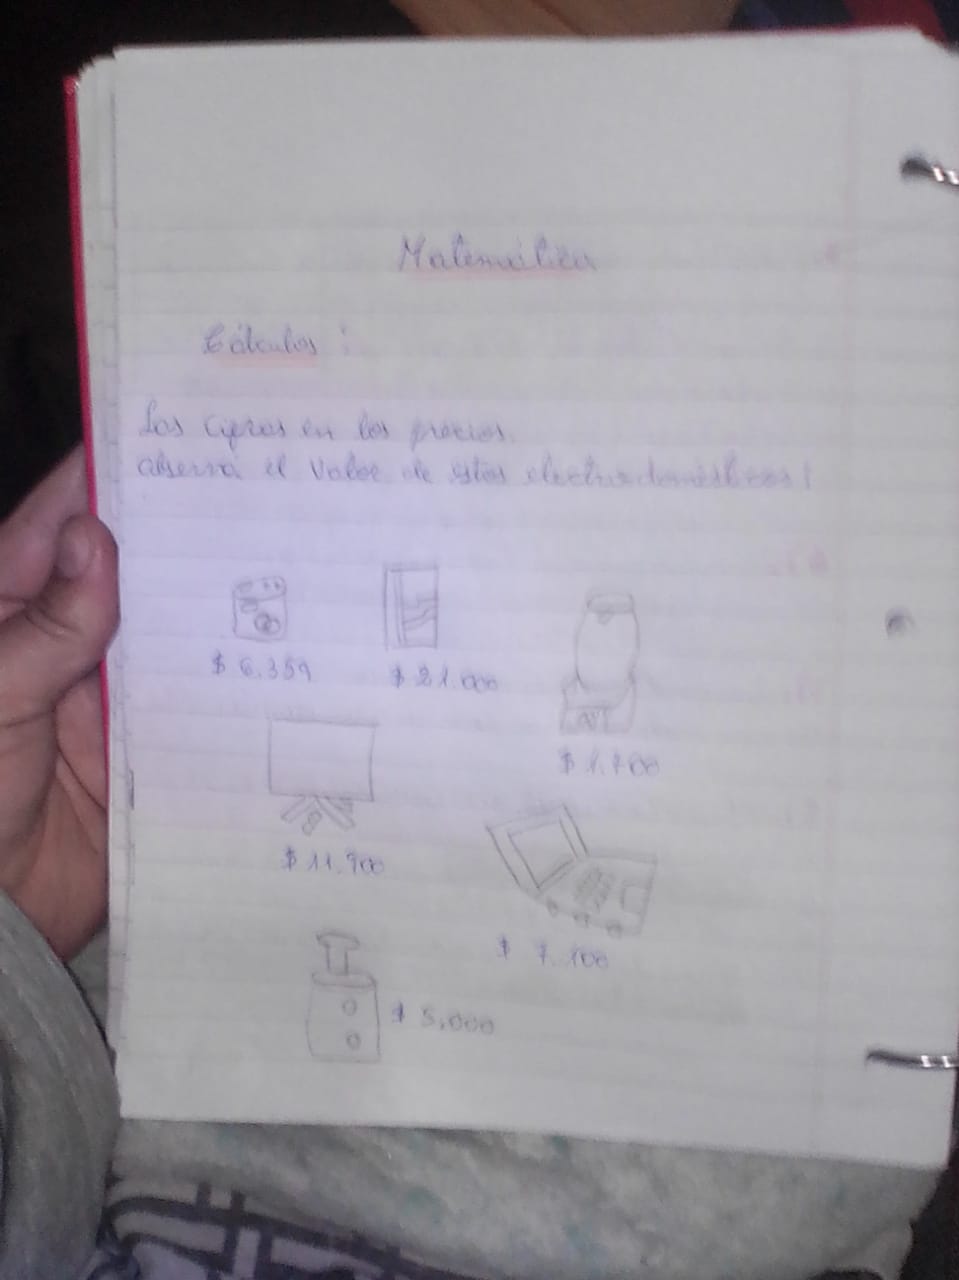 Matemática
Cálculos:
Las cifras en los precios.
observá el valor de estos electrodomésticos!
$ 6.359
$ 21.000
$ 1.700
$ 11.900
$ 7.100
$ 5.000